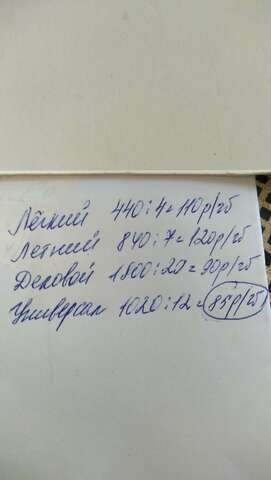 Лёгкий 440:4=110р/гб
Летний 840:7=120р/гб
Деловой 1800:20=90р/гб
Универсал 1020:12=85р/гб